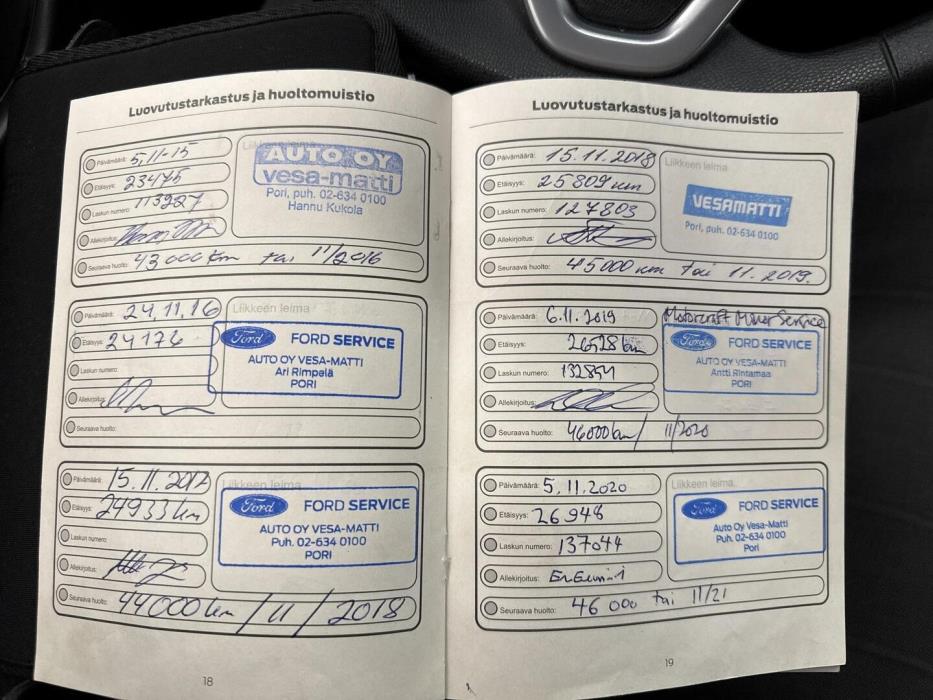 Luovutustarkastus ja huoltomuistio
Päivämäärä: 5,11-15
Etäisyys: 23475
Laskun numero: 113927
Allekirjoitus:
Seuraava huolto: 43 000 km tai 11/2016
Liikkeen leima
AUTO OY
vesa-matti
Pori, puh. 02-634 0100
Hannu Kukola
Päivämäärä: 24,11,16
Etäisyys: 24176
Laskun numero:
Allekirjoitus:
Seuraava huolto:
Liikkeen leima
Ford FORD SERVICE
AUTO OY VESA-MATTI
Ari Rimpelä
PORI
Päivämäärä: 15.11.2017
Etäisyys: 24933 km
Laskun numero:
Allekirjoitus:
Seuraava huolto: 44000 km / 11 / 2018
Liikkeen leima
Ford FORD SERVICE
AUTO OY VESA-MATTI
Puh. 02-634 0100
PORI
18
Luovutustarkastus ja huoltomuistio
Päivämäärä: 15.11.2018
Etäisyys: 25809 km
Laskun numero: 127803
Allekirjoitus:
Seuraava huolto: 45000 km tai 11.2019.
Liikkeen leima
VESAMATTI
Pori, puh. 02-634 0100
Päivämäärä: 6.11.2019
Etäisyys: 26528 km
Laskun numero: 132854
Allekirjoitus:
Seuraava huolto: 46000 km / 11/2020
Motorcraft Service
Ford FORD SERVICE
AUTO OY VESA-MATTI
Antti Rintamaa
PORI
Päivämäärä: 5.11.2020
Etäisyys: 26948
Laskun numero: 137044
Allekirjoitus:
Seuraava huolto: 46 000 tai 11/21
Liikkeen leima
Ford FORD SERVICE
Auto Oy Vesa-Matti
Puh. 02-634 0100
Pori
19